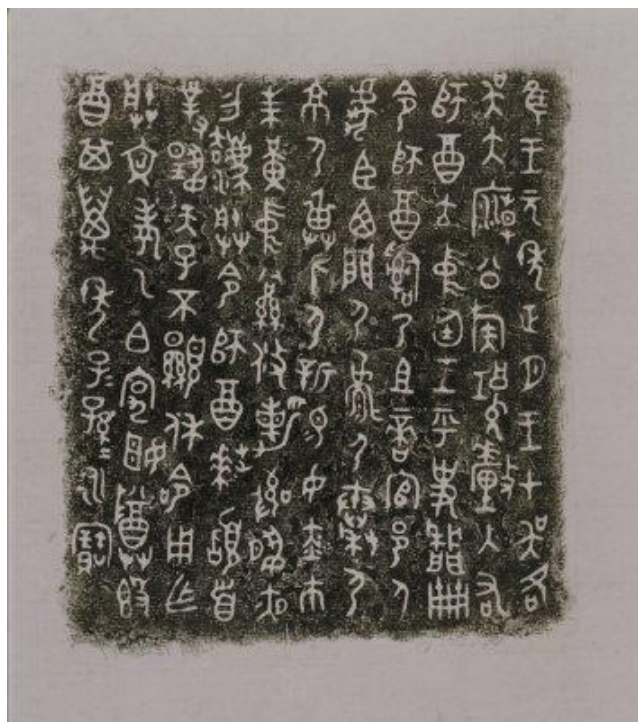 隹王元年正月王才吳各
吳大廟公族釐入右
師酉立中廷王乎史冊
令師酉𤔲乃且啻官邑人
虎臣西門尸尸秦尸
京尸身尸新易女赤巿
朱黃中攸勒敬夙夜
勿灋朕令師酉拜𩒨首
對揚天子不顯休令用乍
朕文考乙白宄姬尊𣪘
酉其萬年子子孫孫永寶